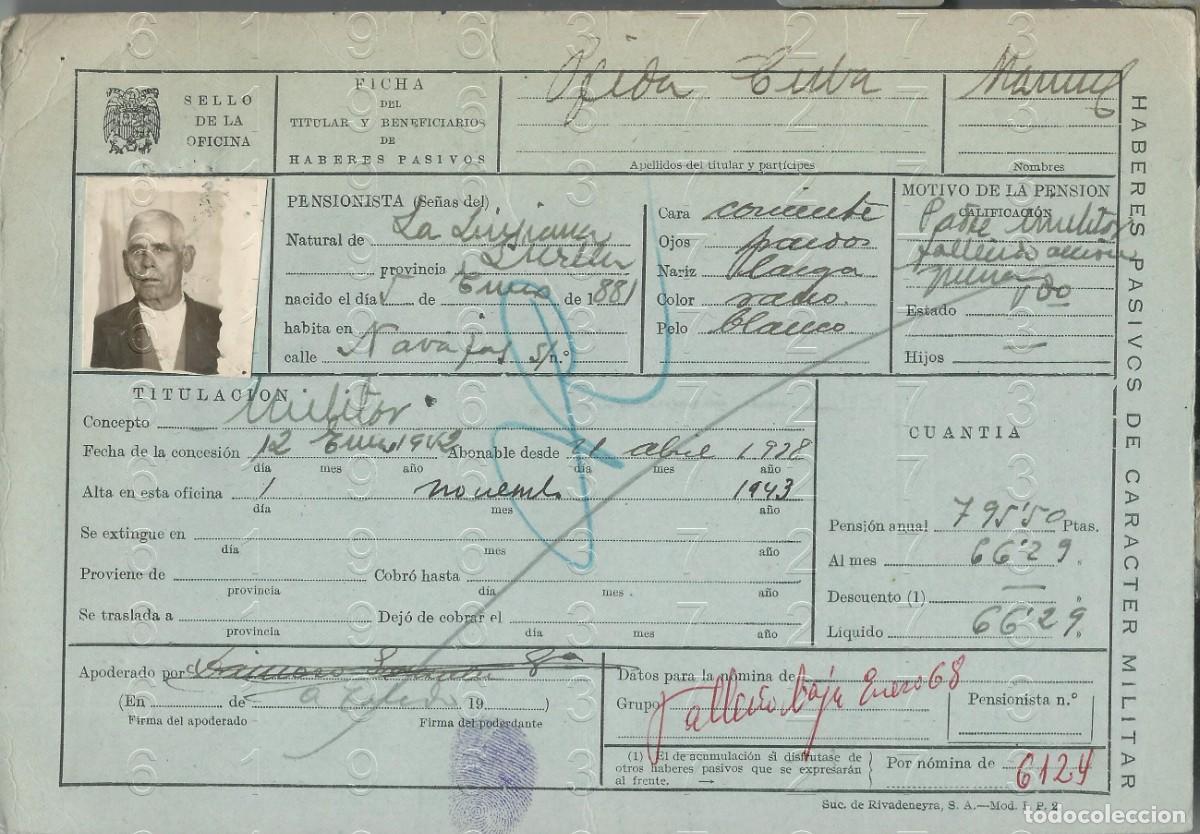 SELLO
DE LA
OFICINA
FICHA
DEL
TITULAR Y BENEFICIARIOS
DE
HABERES PASIVOS
Ojeda
Apellidos del titular y partícipes
Manuel
Nombres
HABERES PASIVOS DE CARACTER MILITAR
PENSIONISTA (Señas del)
Natural de La Luisiana
provincia
nacido el día de Enero de 1881
habita en
calle Navajas s/n.º
Cara corriente
Ojos pardos
Nariz larga
Color
Pelo blanco
MOTIVO DE LA PENSION
CALIFICACIÓN
Padre militar
fallecido
Estado
Hijos —
TITULACION
Concepto Militar
Fecha de la concesión 12 Enero 1942 Abonable desde 21 abril 1938
día mes año día mes año
Alta en esta oficina 1 noviembre 1943
día mes año
Se extingue en
día mes año
Proviene de Cobró hasta
provincia día mes año
Se traslada a Dejó de cobrar el
provincia día mes año
CUANTIA
Pensión anual 795'50 Ptas.
Al mes 66'29 "
Descuento (1) — "
Líquido 66'29 "
Apoderado por
(En de 19 )
Firma del apoderado Firma del poderdante
Datos para la nómina de
Grupo
Falleció baja Enero 68
Pensionista n.º
(1) El de acumulación si disfrutase de
otros haberes pasivos que se expresarán
al frente. →
Por nómina de 6124
Suc. de Rivadeneyra, S. A.—Mod. I. P. 2
todocoleccion
6 1 9 6 3 7 2 7 3